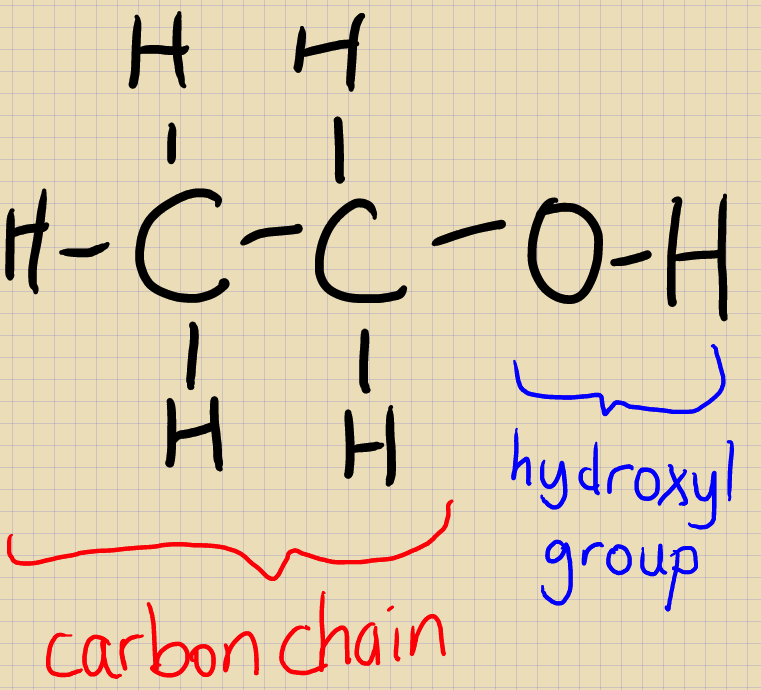 H H
H-C-C-O-H
H H
hydroxyl
group
carbon chain